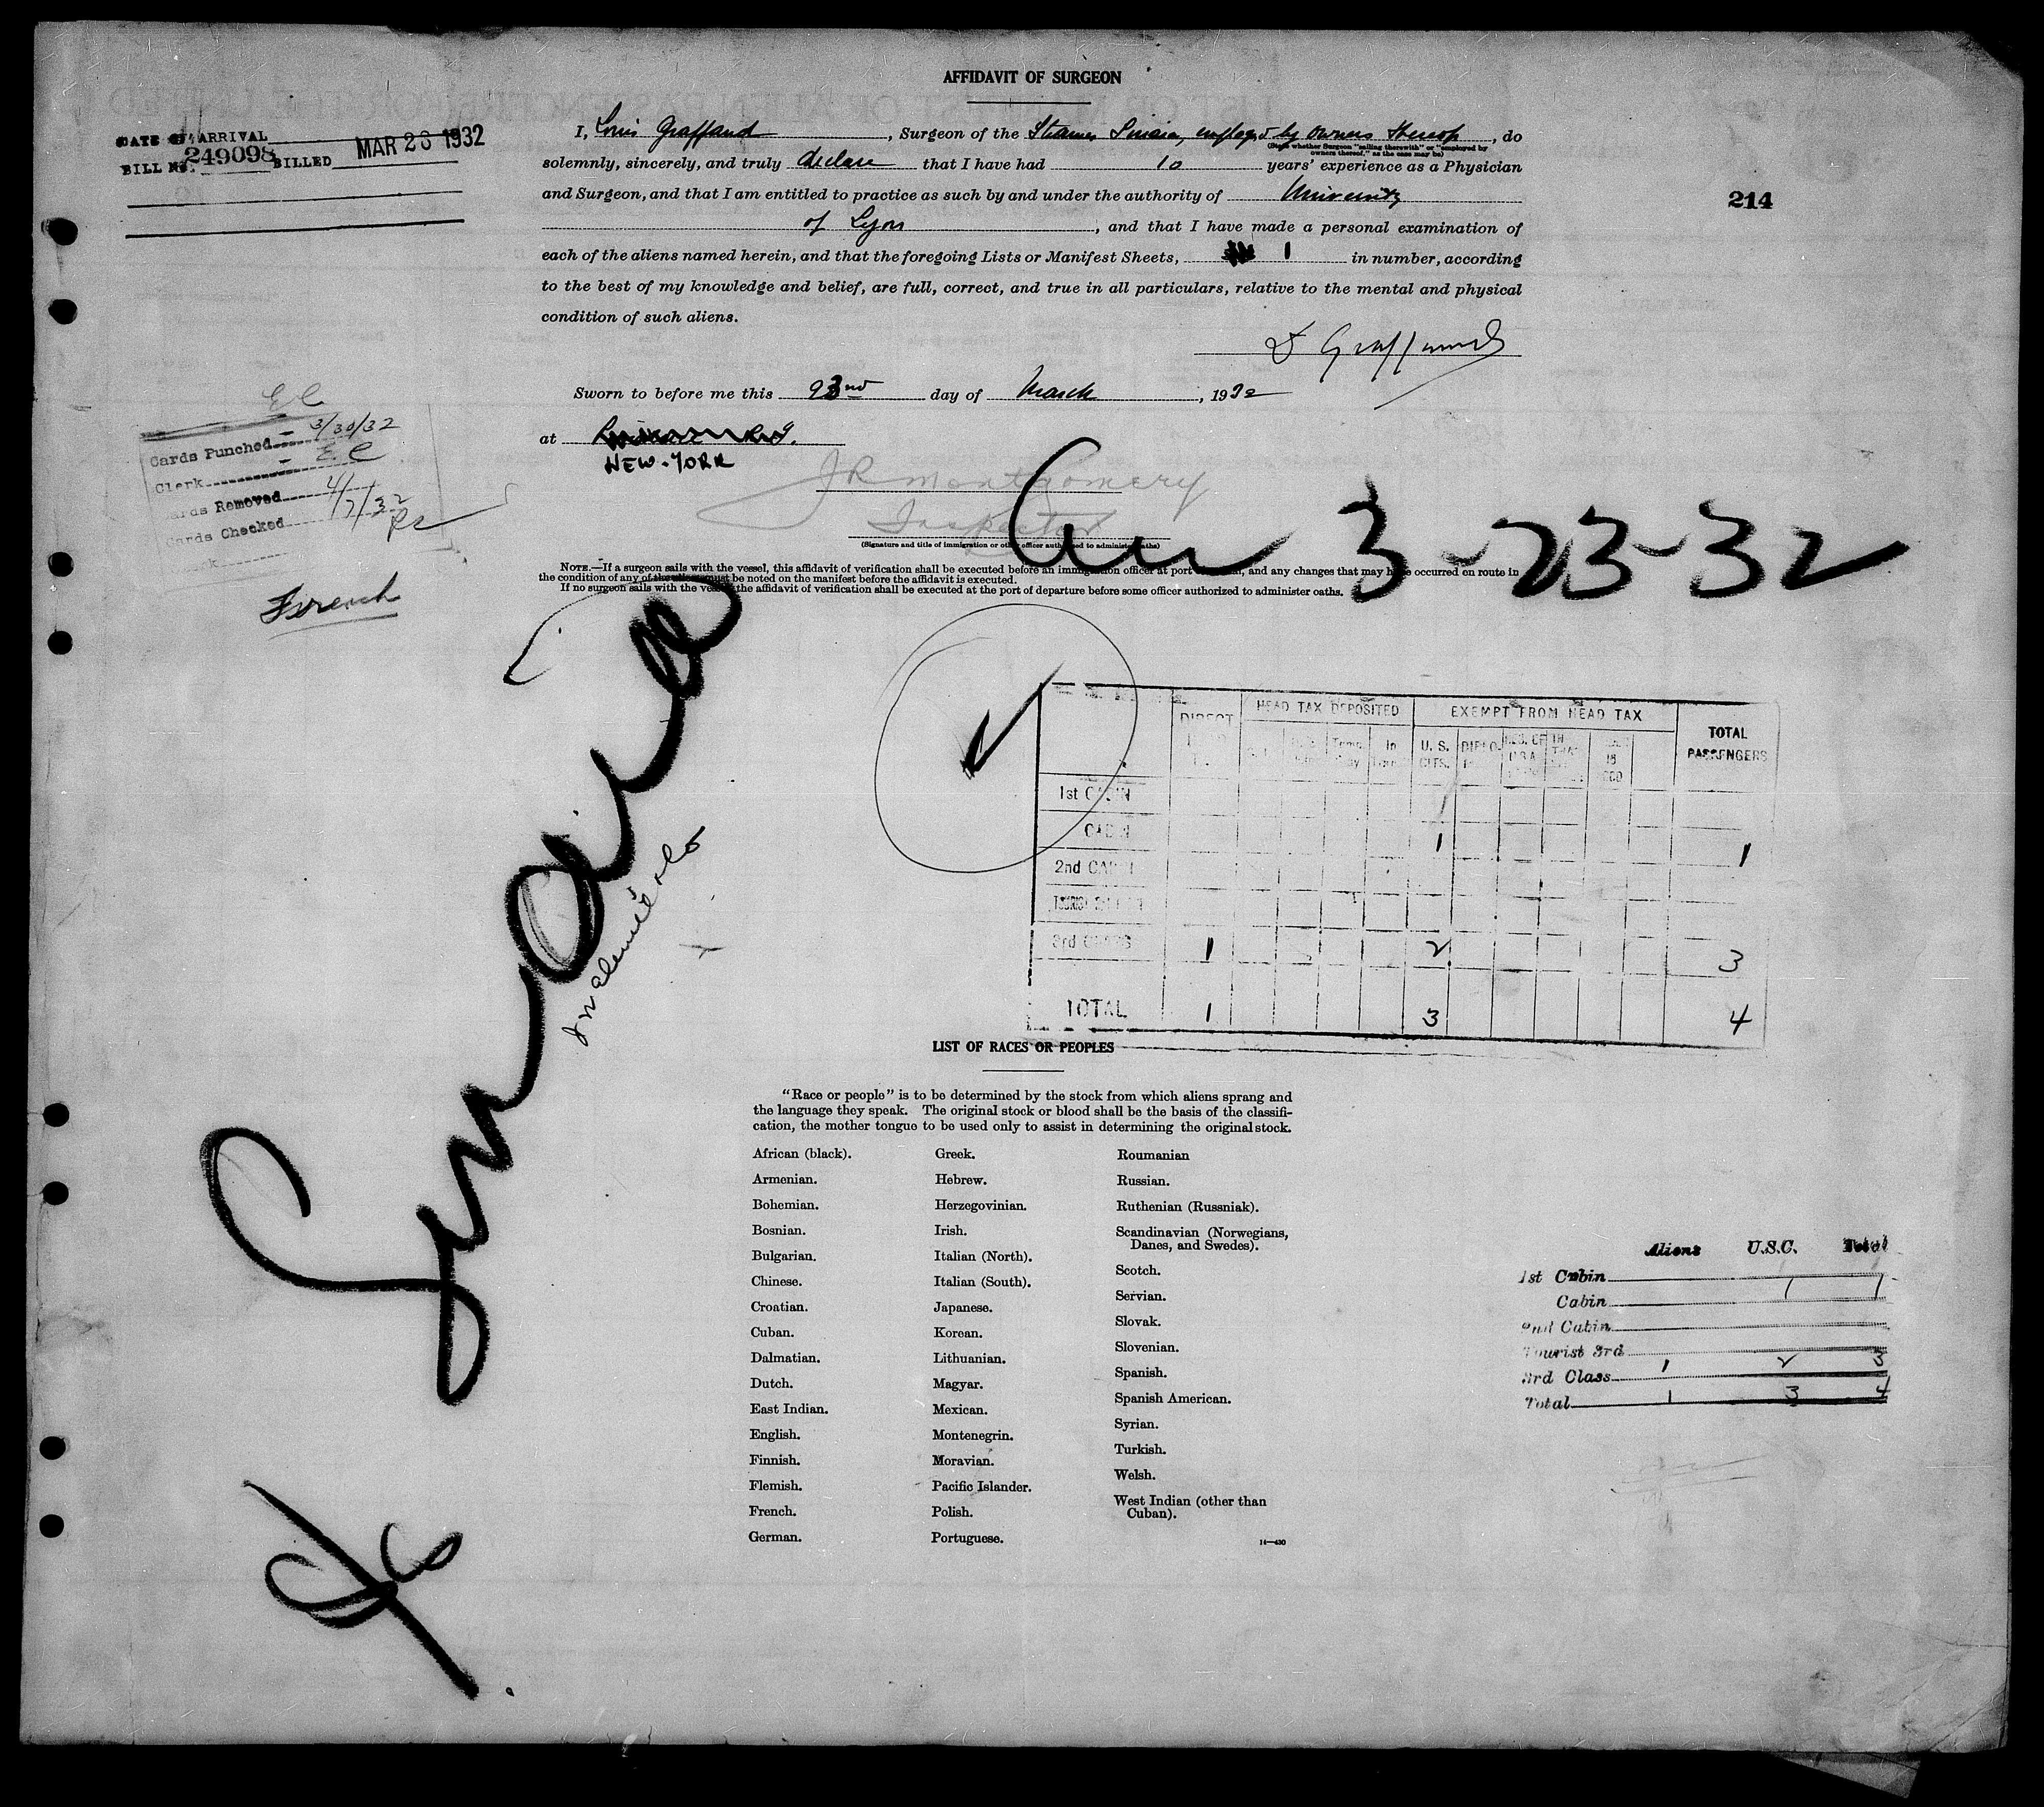 AFFIDAVIT OF SURGEON
DATE OF ARRIVAL
BILL No. 249098 BILLED MAR 23 1932
214
I, Louis Graffand, Surgeon of the Steamer Sinaia, employed by owners thereof, do
(State whether Surgeon "sailing therewith" or "employed by
owners thereof," as the case may be)
solemnly, sincerely, and truly declare that I have had 10 years' experience as a Physician
and Surgeon, and that I am entitled to practice as such by and under the authority of University
of Lyon, and that I have made a personal examination of
each of the aliens named herein, and that the foregoing Lists or Manifest Sheets, 1 in number, according
to the best of my knowledge and belief, are full, correct, and true in all particulars, relative to the mental and physical
condition of such aliens.
Sworn to before me this 23nd day of March, 1932
at
NEW-YORK
JR Montgomery
Inspector
(Signature and title of immigration or other officer authorized to administer oaths)
NOTE.—If a surgeon sails with the vessel, this affidavit of verification shall be executed before an immigration officer at port of arrival, and any changes that may have occurred on route in
the condition of any of the aliens must be noted on the manifest before the affidavit is executed.
If no surgeon sails with the vessel, the affidavit of verification shall be executed at the port of departure before some officer authorized to administer oaths.
EC
Cards Punched 3/30/32
Clerk EC
Cards Removed 4/7/32
Cards Checked
French
3-23-32
Sinaia
DIRECT HEAD TAX DEPOSITED EXEMPT FROM HEAD TAX TOTAL PASSENGERS
U. S. CITS.
1st CABIN
CABIN 1 1
2nd CABIN
TOURIST
3rd CLASS 1 2 3
TOTAL 1 3 4
LIST OF RACES OR PEOPLES
"Race or people" is to be determined by the stock from which aliens sprang and
the language they speak. The original stock or blood shall be the basis of the classifi-
cation, the mother tongue to be used only to assist in determining the original stock.
African (black).
Armenian.
Bohemian.
Bosnian.
Bulgarian.
Chinese.
Croatian.
Cuban.
Dalmatian.
Dutch.
East Indian.
English.
Finnish.
Flemish.
French.
German.
Greek.
Hebrew.
Herzegovinian.
Irish.
Italian (North).
Italian (South).
Japanese.
Korean.
Lithuanian.
Magyar.
Mexican.
Montenegrin.
Moravian.
Pacific Islander.
Polish.
Portuguese.
Roumanian
Russian.
Ruthenian (Russniak).
Scandinavian (Norwegians,
Danes, and Swedes).
Scotch.
Servian.
Slovak.
Slovenian.
Spanish.
Spanish American.
Syrian.
Turkish.
Welsh.
West Indian (other than
Cuban).
14—430
Aliens U.S.C. Total
1st Cabin 1 1
Cabin
2nd Cabin
Tourist 3rd
3rd Class 1 2 3
Total 1 3 4